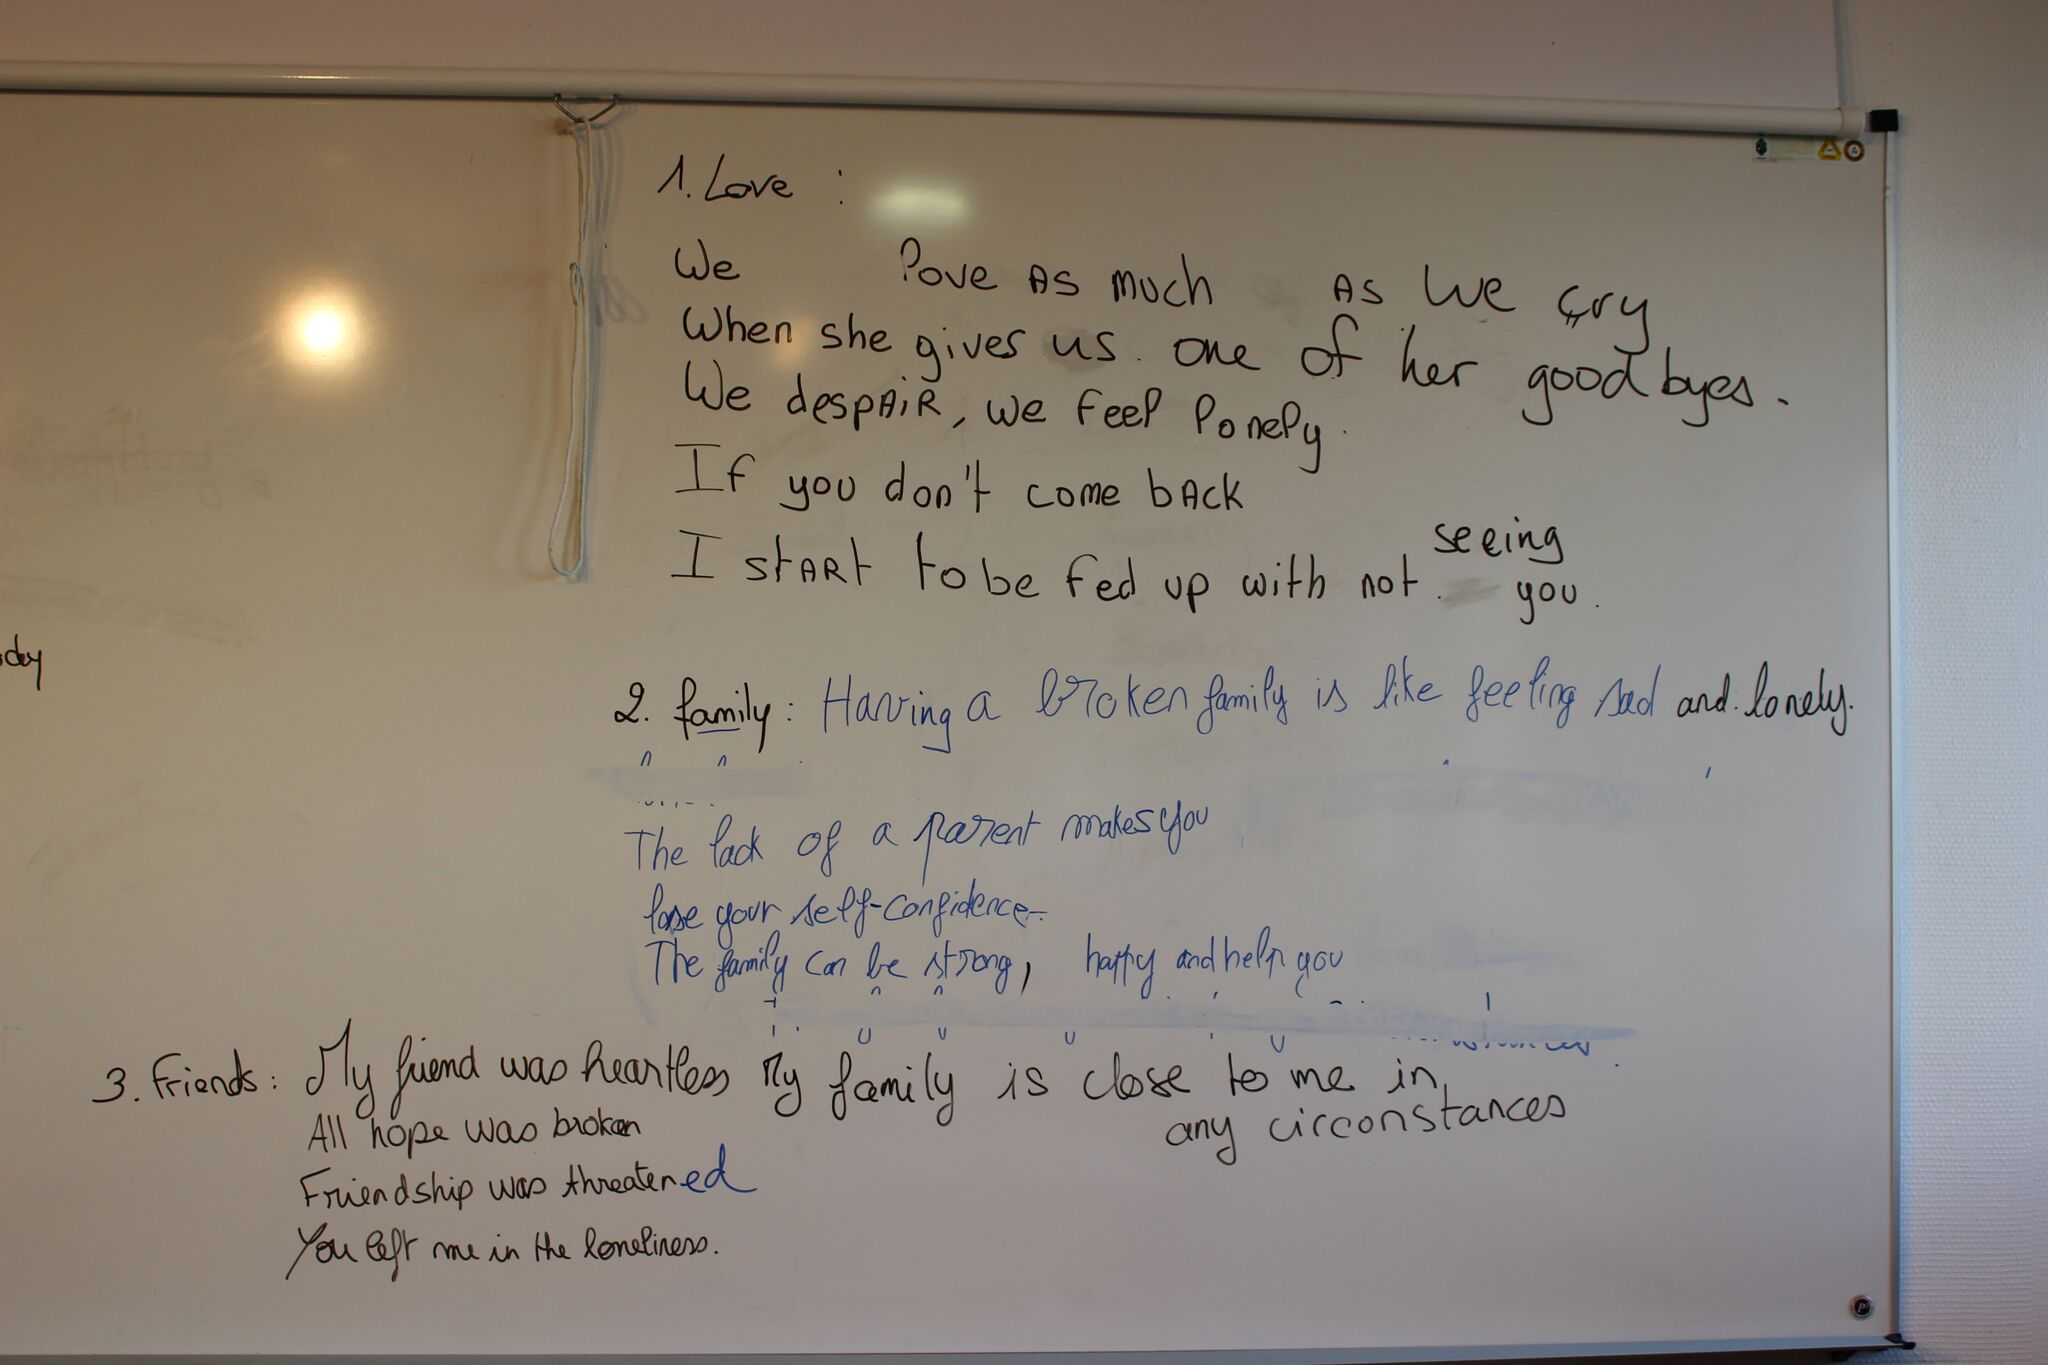 1. Love :
We love as much as we cry
When she gives us one of her goodbyes.
We despair, we feel lonely.
If you don't come back
I start to be fed up with not seeing you.
2. family: Having a broken family is like feeling sad and lonely.
The lack of a parent makes you
lose your self-confidence.
The family can be strong, happy and help you
My family is close to me in
any circonstances
3. Friends: My friend was heartless
All hope was broken
Friendship was threatened
You left me in the loneliness.